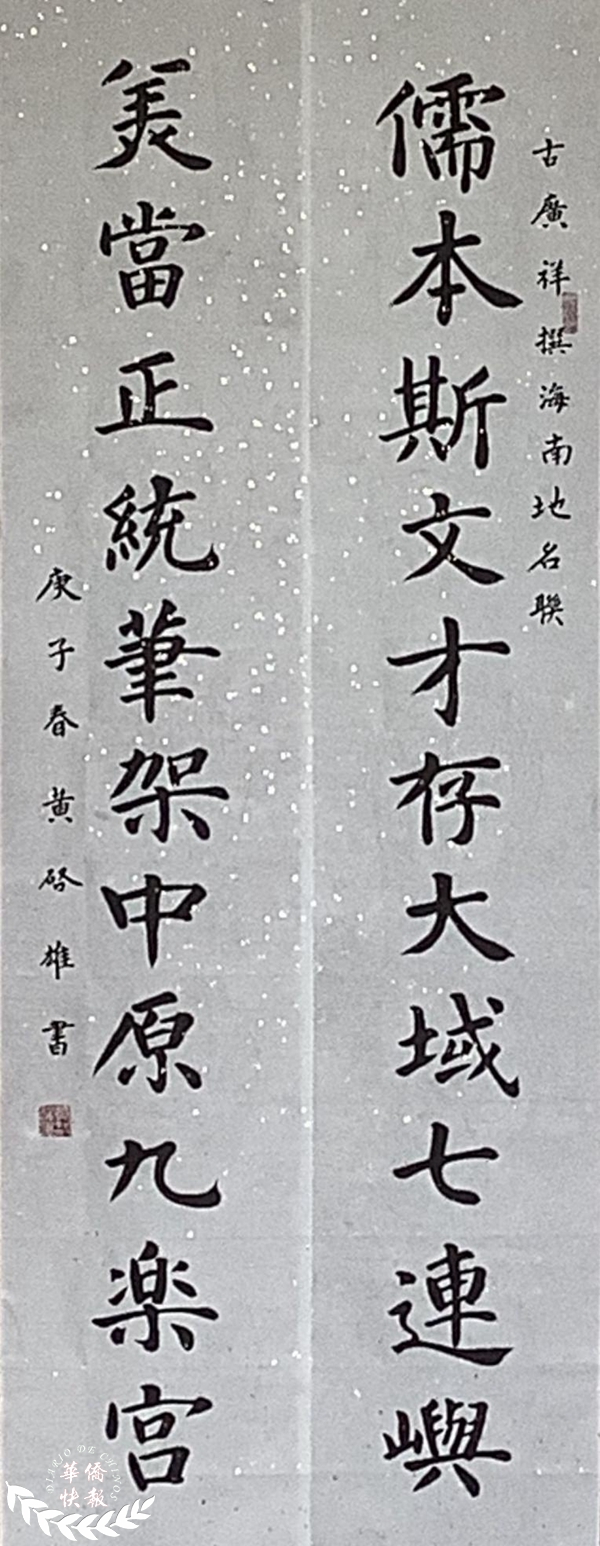 古廣祥撰海南地名聯
儒本斯文才存大域七連嶼
羙當正統筆架中原九楽宫
庚子春黄啓雄書
DIARIO DE CHINOS
華僑
快報